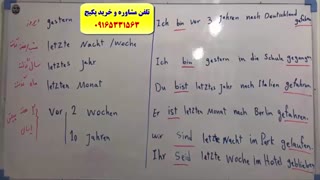 تلفن مشاوره و خرید پکیج
۰۹۱۶۵۳۳۱۵۶۳
دیروز gestern
letzte Nacht /woche
letztes Jahr
letzten Monat
Vor 2 Wochen
10 Jahren
Ich bin vor 3 Jahren nach Deutschland gefahren
Ich bin gestern in die Schule gegangen.
Du bist letztes Jahr nach Italien gefahren.
Er ist letzten Monat nach Berlin gefahren.
wir sind letzte Nacht im Park gelaufen.
Ihr Seid letzte Woche im Hotel geblieben